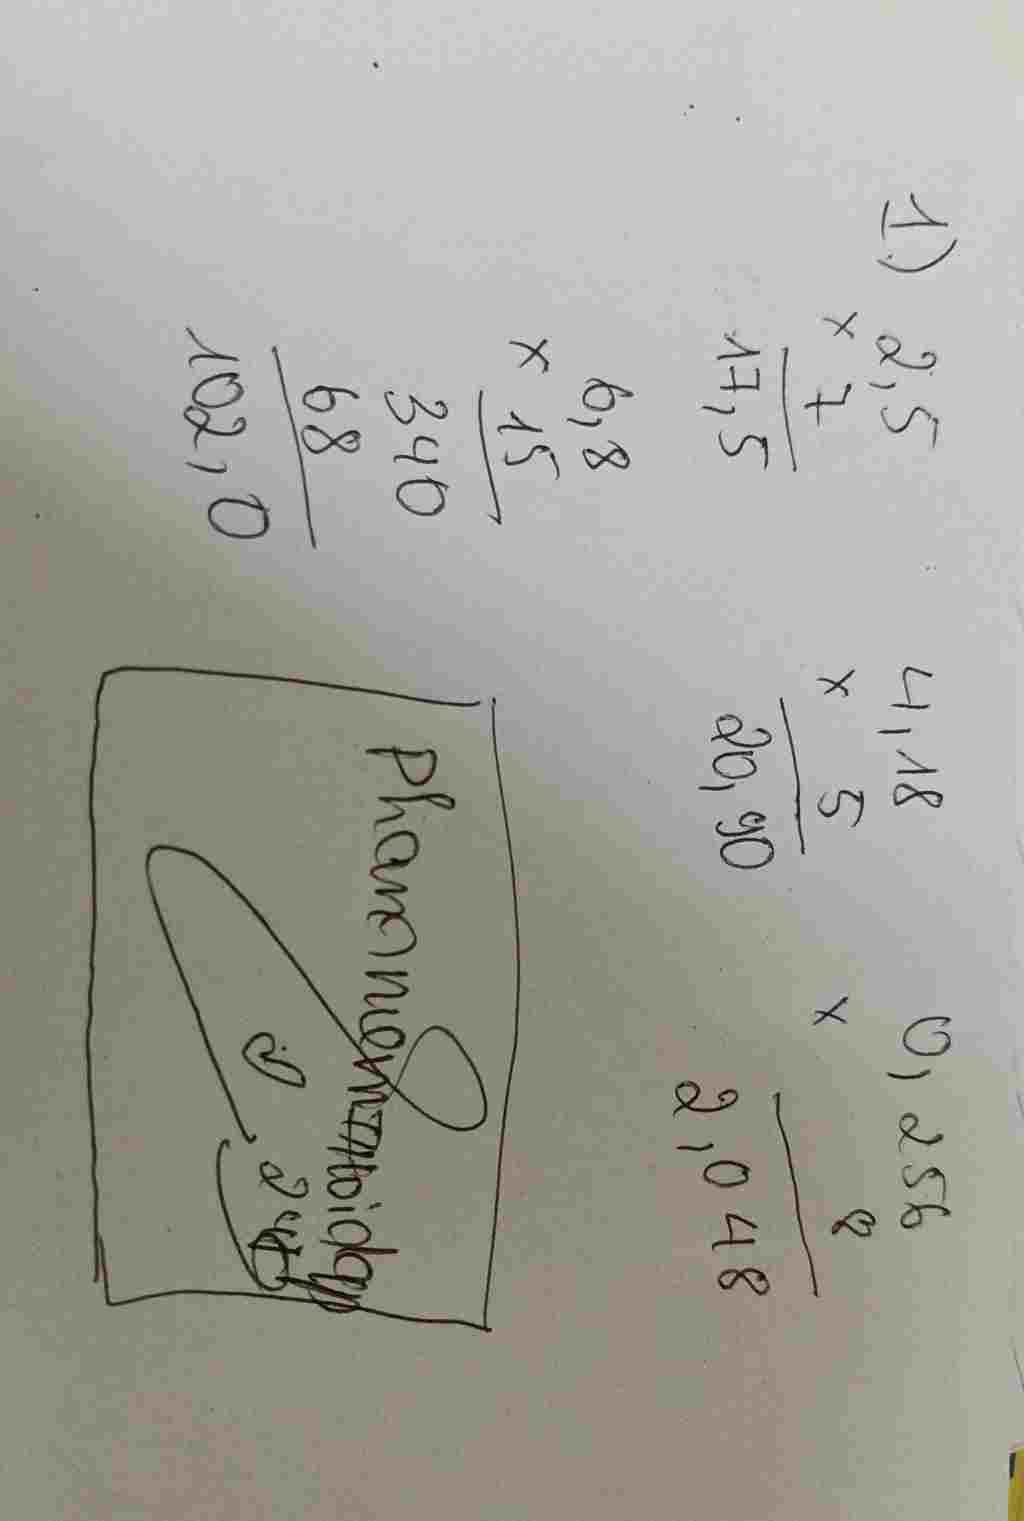 1.) 2,5
x 7
17,5
4,18
x 5
20,90
0,256
x 8
2,048
6,8
x 15
340
68
102,0